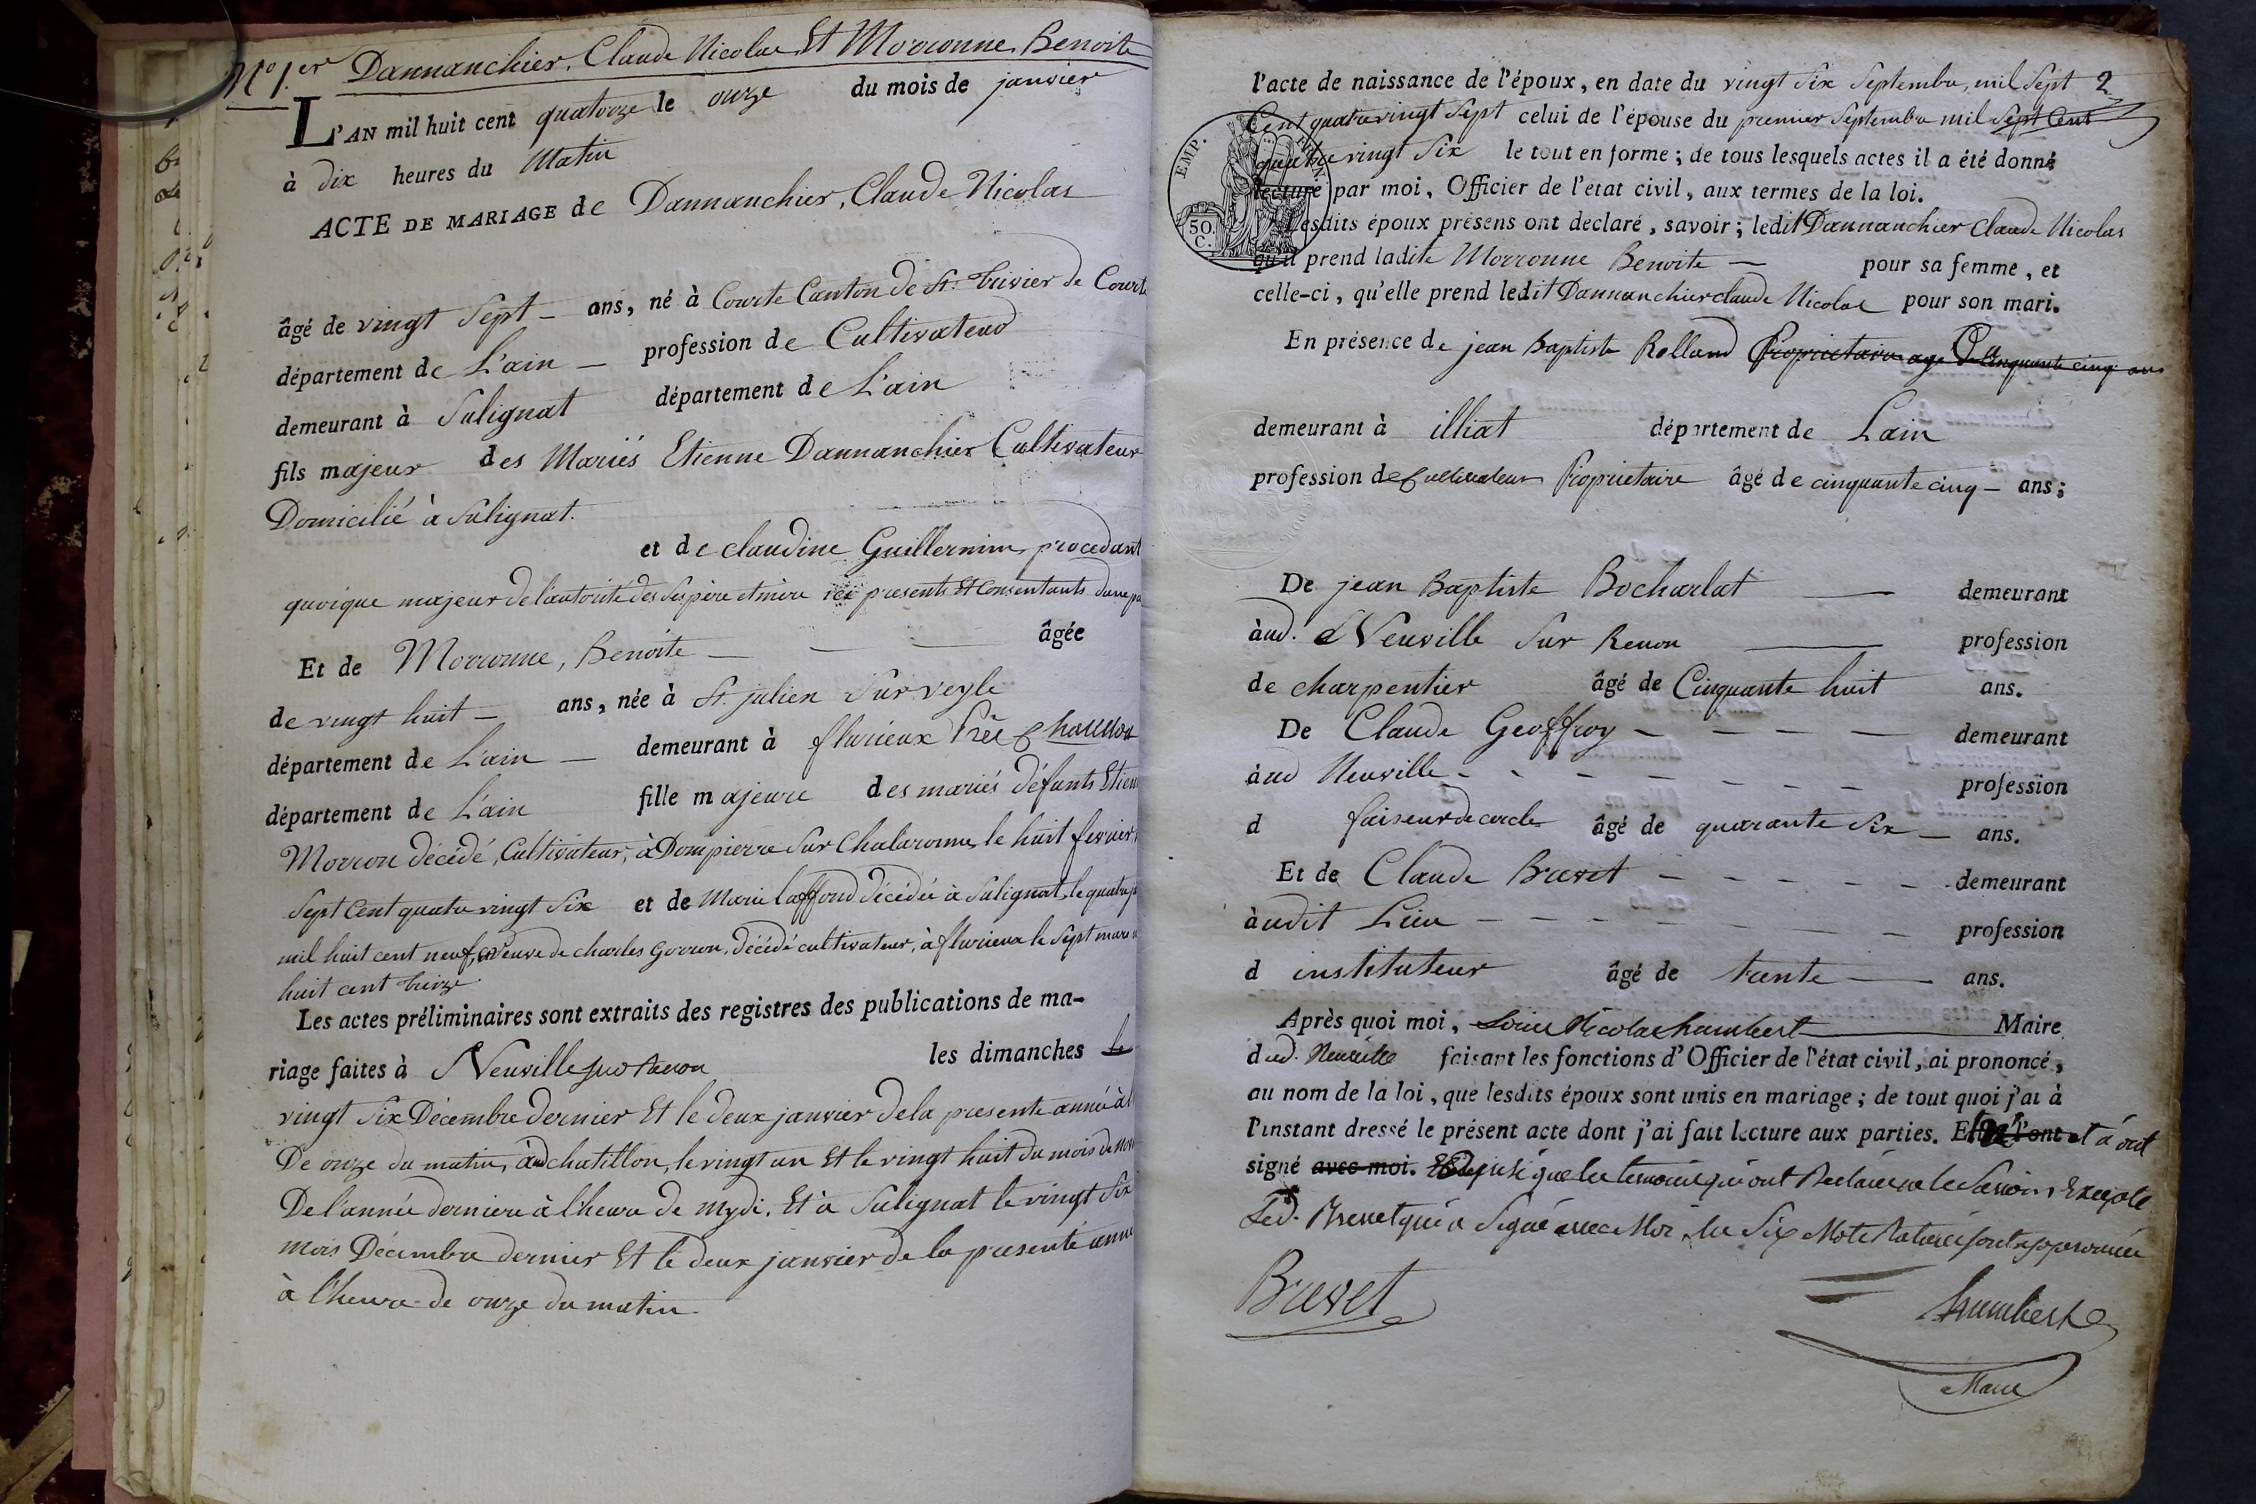 N.º 1.er Dannanchier, Claude Nicolas Et Morronne, Benoite
L'AN mil huit cent quatorze le onze du mois de janvier
à dix heures du Matin
ACTE DE MARIAGE de Dannanchier, Claude Nicolas
âgé de vingt Sept — ans, né à Courte Canton de St. trivier de Courte
département de L'ain — profession de Cultivateur
demeurant à Sulignat département de L'ain
fils majeur des Mariés Etienne Dannanchier Cultivateur
Domicilié à Sulignat.
et de claudine Guillermin, procedant
quoique majeur de l'autorité des Ses père et mère ici presents Et Consentants d'une pa
Et de Morronne, Benoite — — — âgée
de vingt huit — ans, née à St. julien Sur veyle
département de L'ain — demeurant à flurieux Près Chatillon
département de L'ain fille majeure des mariés défunts Etien
Morron décédé, Cultivateur, à Dompierre Sur Chalaronne, le huit fevrier
Sept Cent quatre vingt Six et de Marie laffond décédée à Sulignat, le quatre
mil huit cent neuf, veuve de charles Gorron, décédé cultivateur, à flurieux le Sept mars
huit cent treize.
Les actes préliminaires sont extraits des registres des publications de ma-
riage faites à Neuville sur Renon les dimanches le
vingt Six Décembre dernier Et le deux janvier de la presente année à l
De onze du matin, à chatillon, le vingt un Et le vingt huit du mois de nov
De l'année derniere à l'heure de mydi. Et à Sulignat le vingt Six
mois Décembre dernier Et le deux janvier de la presente anné
à l'heure de onze du matin.
2
l'acte de naissance de l'époux, en date du vingt Six Septembre, mil Sept
Cent quatre vingt Sept celui de l'épouse du premier Septembre mil Sept Cent
quatre vingt Six le tout en forme ; de tous lesquels actes il a été donné
lecture par moi, Officier de l'état civil, aux termes de la loi.
EMP. 50. C.
Lesdits époux présens ont déclaré, savoir ; ledit Dannanchier Claude Nicolas
qu'il prend ladite Morronne Benoite — pour sa femme, et
celle-ci, qu'elle prend ledit Dannanchier claude Nicolas pour son mari.
En présence de jean Baptiste Rolland Proprietaire age de Cinquante cinq ans
demeurant à illiat département de Lain
profession de Cultivateur Proprietaire âgé de cinquante cinq — ans ;
De jean Baptiste Bocharlat — demeurant
àud. Neuville Sur Renon — profession
de charpentier âgé de Cinquante huit ans.
De Claude Geoffroy — — — — demeurant
àud Neuville - - - - - - profession
d faiseur de cercle âgé de quarante Six — ans.
Et de Claude Brevet — — — — — demeurant
àudit Lieu — — — — — — profession
d instituteur âgé de trente — ans.
Après quoi moi, Nicolas humbert — Maire
dud. Neuville faisant les fonctions d'Officier de l'état civil, ai prononcé,
au nom de la loi, que lesdits époux sont unis en mariage ; de tout quoi j'ai à
l'instant dressé le présent acte dont j'ai fait lecture aux parties. Et l'ont
signé avec moi. que les temoins qui ont Declaré ne le Savoir, Excepté
Led. Brevet qui a Signé avec Moi, les Six Mots Raturés sont approuvés
Brevet
humbert
Maire